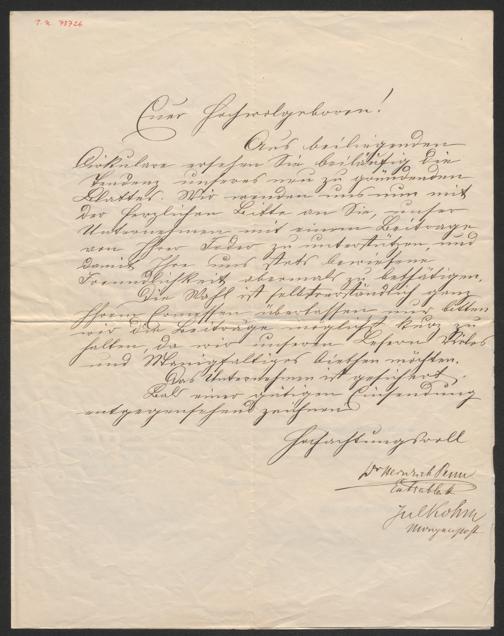 I. N. 78726
Euer Hochwolgeboren!
Aus beiliegendem
Cirkulare ersehen Sie beiläufig die
Tendenz unseres neu zu gründenden
Blattes. Wir wenden uns nun mit
der herzlichen Bitte an Sie, unser
Unternehmen mit einem Beitrage
von Ihrer Feder zu unterstützen, und
damit Ihre uns stets bewiesene
Freundlichkeit abermals zu bethätigen.
Die Wahl ist selbstverständlich ganz
Ihrem Ermessen überlassen, nur bitten
wir die Beiträge möglichst kurz zu
halten, da wir unseren Lesern Vieles
und Mannigfaltiges biethen möchten.
Das Unternehmen ist gesichert.
Bald einer gütigen Einsendung
entgegensehend zeichnen
Hochachtungsvoll
Dr Heinrich Penn
Extrablatt
Jul Kohn
Morgenpost